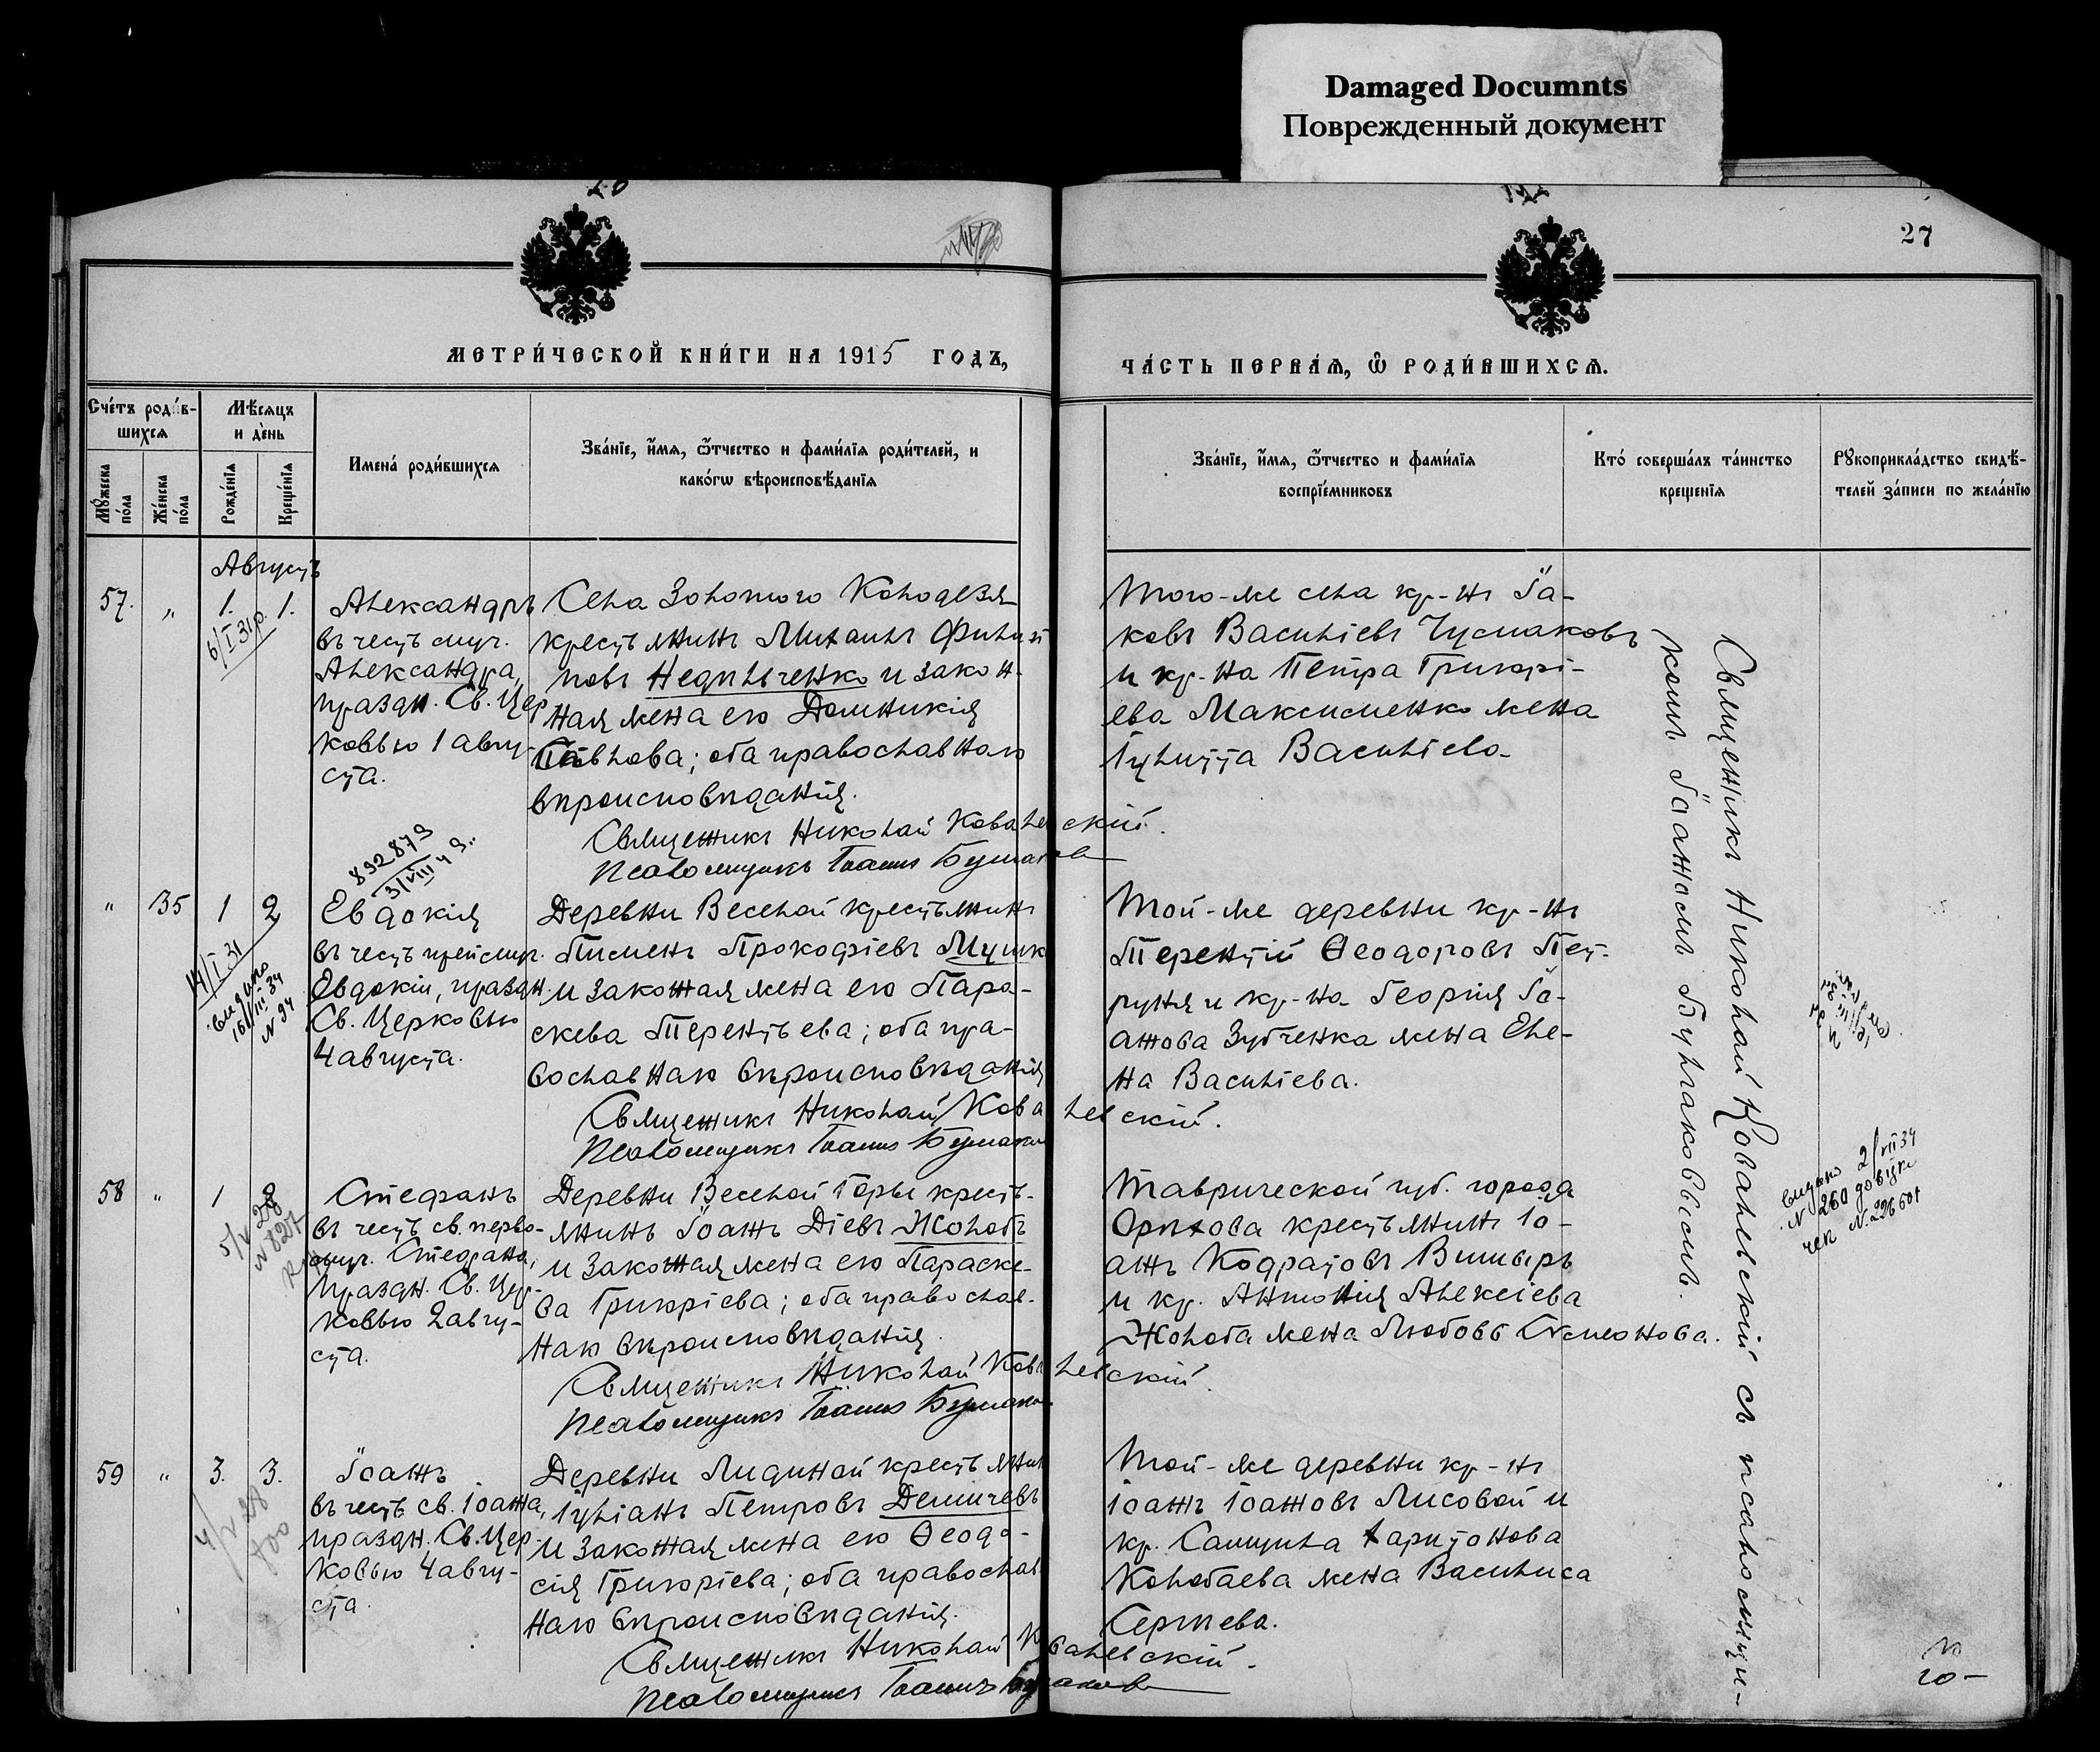 Damaged Documnts
Поврежденный документ
27
МЕТРИ́ЧЕСКОЙ КНИ́ГИ НА 1915 ГОДЪ,
ЧА́СТЬ ПЕРВА́Ѧ, Ѽ РОДИ́ВШИХСѦ.
Сче́тъ роди́в-
шихсѧ
Мѣ́сѧцъ
и де́нь
Мꙋ́жеска
по́ла
Же́нска
по́ла
Рожде́нїѧ
Креще́нїѧ
Имена́ роди́вшихсѧ
Зва́нїе, и҆́мѧ, ѻ҆́тчество и фами́лїѧ роди́телей, и
како́гѡ вѣроисповѣ́данїѧ
Зва́нїе, и҆́мѧ, ѻ҆́тчество и фами́лїѧ
воспрїе́мниковъ
Кто́ соверша́лъ та́инство
креще́нїѧ
Рꙋкоприкла́дство свидѣ́-
телей за́писи по жела́нїю
Августъ
57. " 1. 1.
6/I 31 р.
Александръ
въ честь муч.
Александра,
праздн. Св. Цер
ковью 1 авгу-
ста.
Села Золотого Колодезя
крестьянинъ Михаилъ Филип
повъ Недѣльченко и закон-
ная жена его Домникія
Павлова; оба православнаго
вѣроисповѣданія.
Священникъ Николай Ковалевскій.
Псаломщикъ Іоаннъ Булгаковъ
Того-же села кр-нъ Іа-
ковъ Васильевъ Чусмаковъ
и кр-на Петра Григорі-
ева Максименко жена
Іулитта Васильева
892879
31/VIII 49
" 35 1 2
14/I 31
видано
16/III 34
N 94
Евдокія
въ честь препмуч.
Евдокіи, праздн.
Св. Церковью
4 августа.
Деревни Веселой крестьянинъ
Пименъ Прокофіевъ Мушк
и законная жена его Пара-
скева Терентьева; оба пра-
вославнаго вѣроисповѣданія
Священникъ Николай Ковалевскій.
Псаломщикъ Іоаннъ Булгаковъ
Той-же деревни кр-нъ
Терентій Ѳеодоровъ Пет-
руня и кр-на Георгія Іо-
анова Зубченка жена Еле-
на Васильева.
58 " 1 2
5/V 28
N 827
Стефанъ
въ честь св. перво-
муч. Стефана,
праздн. Св. Цер-
ковью 2 авгу-
ста.
Деревни Веселой Горы кресть-
янинъ Іоаннъ Діевъ Жолобъ
и законная жена его Параске-
ва Григорієва; оба православ-
наго вѣроисповѣданія.
Священникъ Николай Ковалевскій.
Псаломщикъ Іоаннъ Булгаковъ
Таврической губ. города
Орѣхова крестьянинъ Іо-
аннъ Кодратовъ Вишыръ
и кр. Антонія Алексіева
Жолоба жена Любовь Симеонова.
видано 2/VII 34
N 260 довідки
чек N. 226501
59 " 3. 3.
4/V 28
Іоаннъ
въ честь св. Іоанна,
праздн. Св. Цер-
ковью 4 авгу-
ста.
Деревни Лидиной крестьянинъ
Іуліанъ Петровъ Демичевъ
и законная жена его Ѳеодо-
сія Григорієва; оба православ
наго вѣроисповѣданія.
Священникъ Николай Ковалевскій.
Псаломщикъ Іоаннъ Булгаковъ
Той-же деревни кр-нъ
Іоаннъ Іоанновъ Лисовой и
кр. Самуила Харитонова
Колобаева жена Василиса
Сергѣева.
Священникъ Николай Ковалевскій съ псаломщи-
комъ Іоанномъ Булгаковымъ.
20-